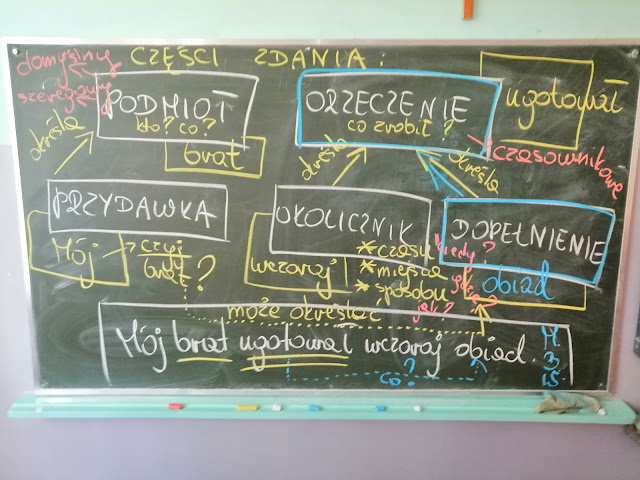 CZĘŚCI ZDANIA:
domyślny
szeregowy
PODMIOT
kto? co?
brat
ORZECZENIE
co zrobił?
ugotował
czasownikowe
określa
określa
określa
PRZYDAWKA
Mój
czyj
brat?
OKOLICZNIK
wczoraj
* czasu kiedy?
* miejsca
* sposobu jak?
DOPEŁNIENIE
obiad
może określać
Mój brat ugotował wczoraj obiad.
co?